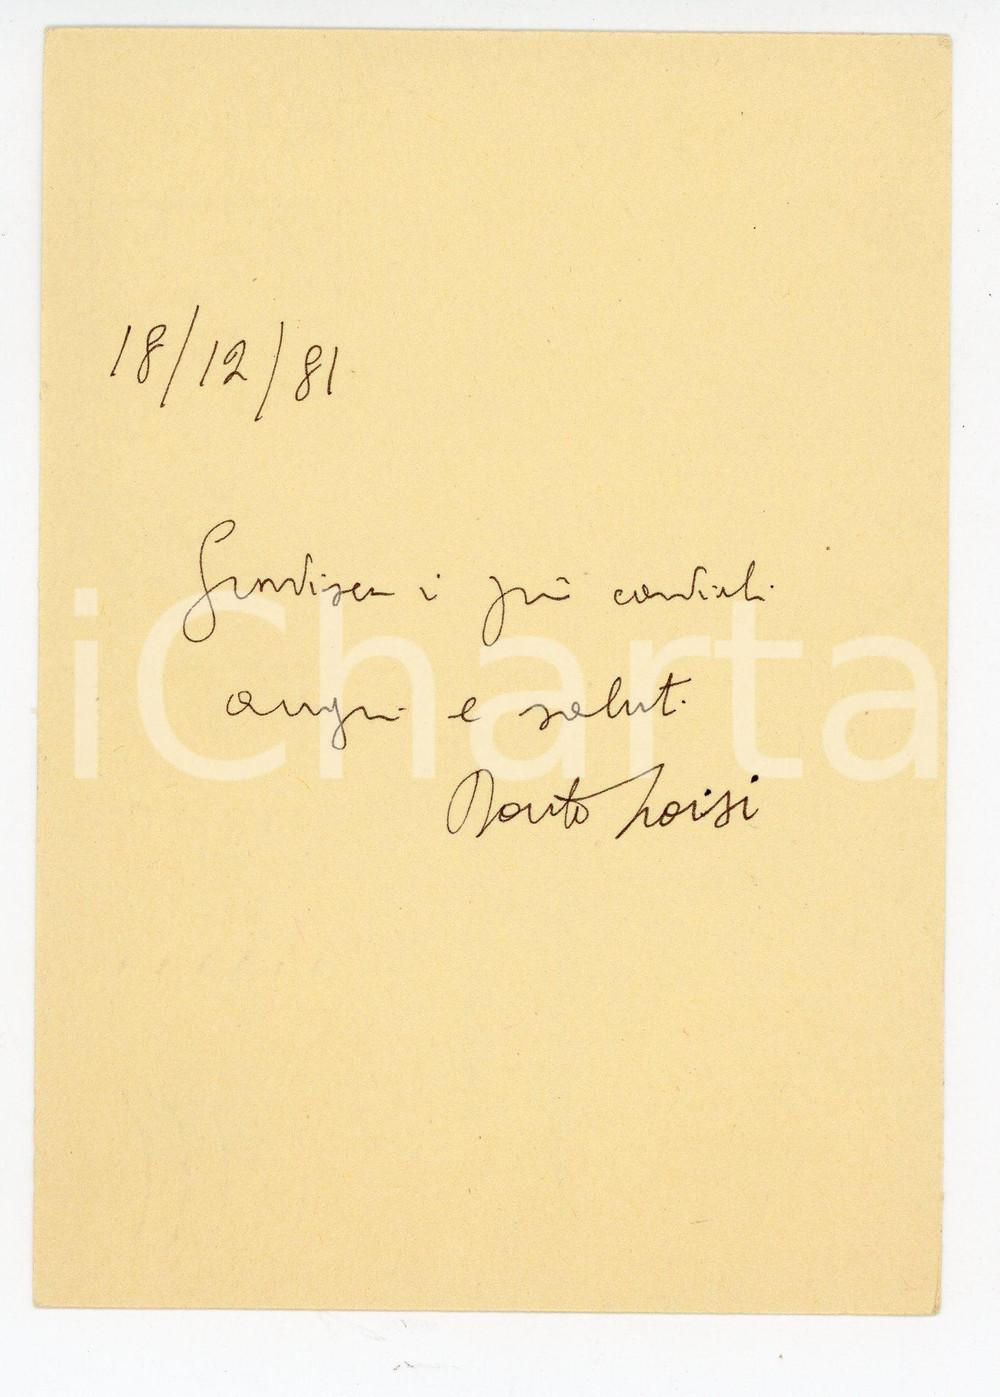 18/12/81
Gradisca i più cordiali
auguri e saluti
iCharta